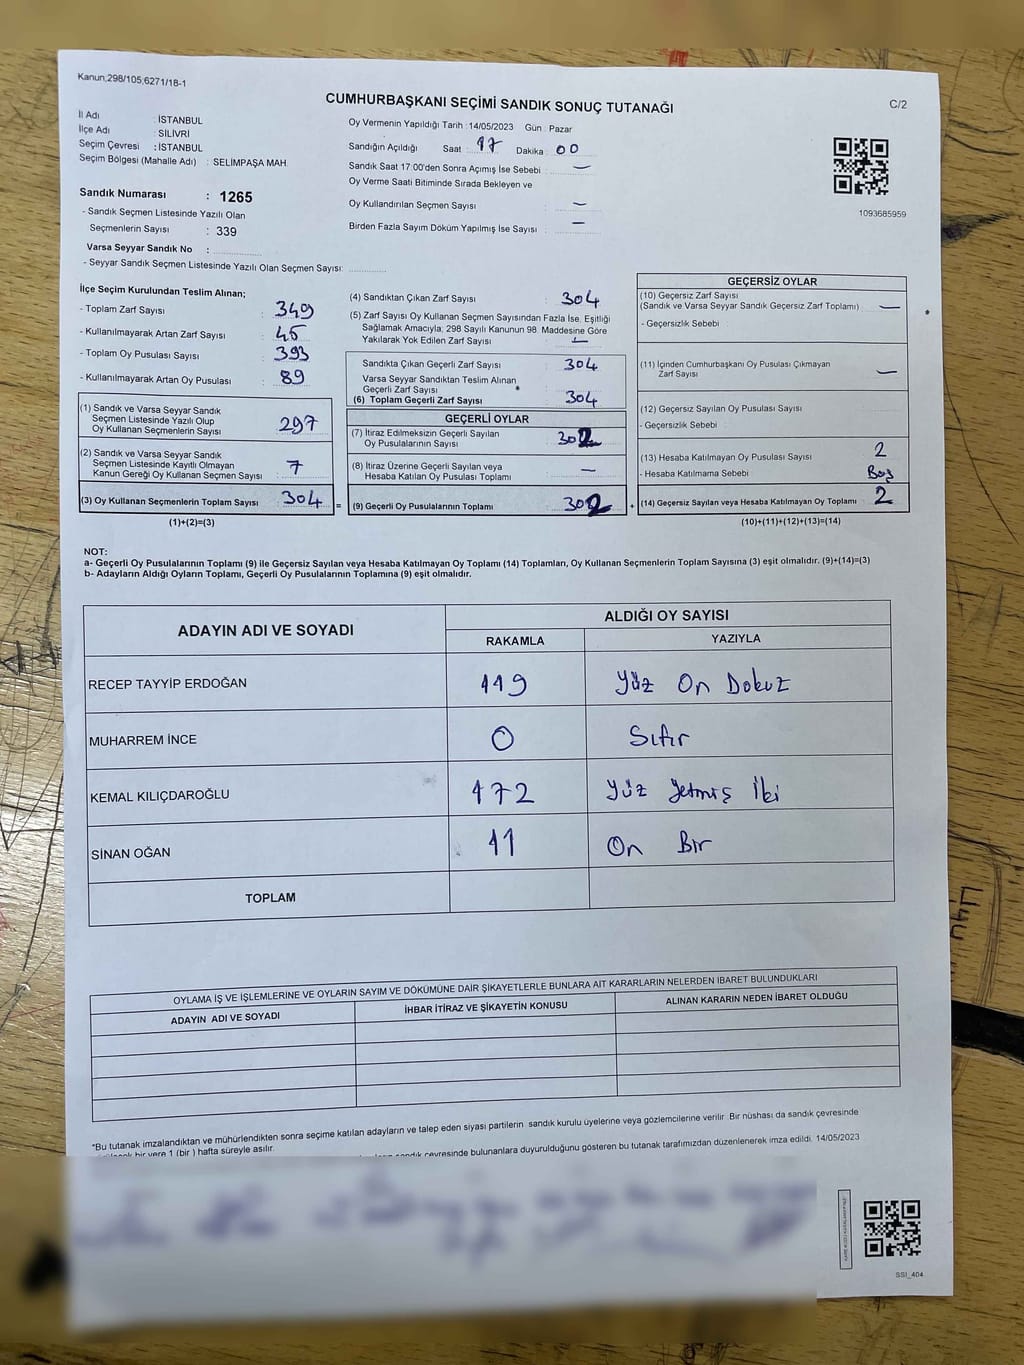 Kanun;298/105;6271/18-1
CUMHURBAŞKANI SEÇİMİ SANDIK SONUÇ TUTANAĞI
C/2
İl Adı : İSTANBUL
İlçe Adı : SİLİVRİ
Seçim Çevresi : İSTANBUL
Seçim Bölgesi (Mahalle Adı) : SELİMPAŞA MAH.
Sandık Numarası : 1265
- Sandık Seçmen Listesinde Yazılı Olan
Seçmenlerin Sayısı : 339
Varsa Seyyar Sandık No :
- Seyyar Sandık Seçmen Listesinde Yazılı Olan Seçmen Sayısı:
Oy Vermenin Yapıldığı Tarih : 14/05/2023 Gün : Pazar
Sandığın Açıldığı Saat : 17 Dakika : 00
Sandık Saat 17:00'den Sonra Açımış İse Sebebi : —
Oy Verme Saati Bitiminde Sırada Bekleyen ve
Oy Kullandırılan Seçmen Sayısı : —
Birden Fazla Sayım Döküm Yapılmış İse Sayısı : —
1093685959
İlçe Seçim Kurulundan Teslim Alınan;
- Toplam Zarf Sayısı : 349
- Kullanılmayarak Artan Zarf Sayısı : 45
- Toplam Oy Pusulası Sayısı : 393
- Kullanılmayarak Artan Oy Pusulası : 89
(1) Sandık ve Varsa Seyyar Sandık
Seçmen Listesinde Yazılı Olup
Oy Kullanan Seçmenlerin Sayısı : 297
(2) Sandık ve Varsa Seyyar Sandık
Seçmen Listesinde Kayıtlı Olmayan
Kanun Gereği Oy Kullanan Seçmen Sayısı : 7
(3) Oy Kullanan Seçmenlerin Toplam Sayısı : 304 =
(1)+(2)=(3)
(4) Sandıktan Çıkan Zarf Sayısı : 304
(5) Zarf Sayısı Oy Kullanan Seçmen Sayısından Fazla İse, Eşitliği
Sağlamak Amacıyla; 298 Sayılı Kanunun 98. Maddesine Göre
Yakılarak Yok Edilen Zarf Sayısı : —
Sandıkta Çıkan Geçerli Zarf Sayısı : 304
Varsa Seyyar Sandıktan Teslim Alınan
Geçerli Zarf Sayısı :
(6) Toplam Geçerli Zarf Sayısı : 304
GEÇERLİ OYLAR
(7) İtiraz Edilmeksizin Geçerli Sayılan
Oy Pusulalarının Sayısı : 302
(8) İtiraz Üzerine Geçerli Sayılan veya
Hesaba Katılan Oy Pusulası Toplamı : —
(9) Geçerli Oy Pusulalarının Toplamı : 302 +
GEÇERSİZ OYLAR
(10) Geçersiz Zarf Sayısı
(Sandık ve Varsa Seyyar Sandık Geçersiz Zarf Toplamı) : —
- Geçersizlik Sebebi :
(11) İçinden Cumhurbaşkanı Oy Pusulası Çıkmayan
Zarf Sayısı : —
(12) Geçersiz Sayılan Oy Pusulası Sayısı :
- Geçersizlik Sebebi :
(13) Hesaba Katılmayan Oy Pusulası Sayısı : 2
- Hesaba Katılmama Sebebi : Boş
(14) Geçersiz Sayılan veya Hesaba Katılmayan Oy Toplamı : 2
(10)+(11)+(12)+(13)=(14)
NOT:
a- Geçerli Oy Pusulalarının Toplamı (9) ile Geçersiz Sayılan veya Hesaba Katılmayan Oy Toplamı (14) Toplamları, Oy Kullanan Seçmenlerin Toplam Sayısına (3) eşit olmalıdır. (9)+(14)=(3)
b- Adayların Aldığı Oyların Toplamı, Geçerli Oy Pusulalarının Toplamına (9) eşit olmalıdır.
ADAYIN ADI VE SOYADI
ALDIĞI OY SAYISI
RAKAMLA YAZIYLA
RECEP TAYYİP ERDOĞAN 119 Yüz On Dokuz
MUHARREM İNCE 0 Sıfır
KEMAL KILIÇDAROĞLU 172 Yüz Yetmiş İki
SİNAN OĞAN 11 On Bir
TOPLAM
OYLAMA İŞ VE İŞLEMLERİNE VE OYLARIN SAYIM VE DÖKÜMÜNE DAİR ŞİKAYETLERLE BUNLARA AİT KARARLARIN NELERDEN İBARET BULUNDUKLARI
ADAYIN ADI VE SOYADI İHBAR İTİRAZ VE ŞİKAYETİN KONUSU ALINAN KARARIN NEDEN İBARET OLDUĞU
*Bu tutanak imzalandıktan ve mühürlendikten sonra seçime katılan adayların ve talep eden siyasi partilerin sandık kurulu üyelerine veya gözlemcilerine verilir. Bir nüshası da sandık çevresinde
bir yere 1 (bir ) hafta süreyle asılır.
sandık çevresinde bulunanlara duyurulduğunu gösteren bu tutanak tarafımızdan düzenlenerek imza edildi. 14/05/2023
SSI_404